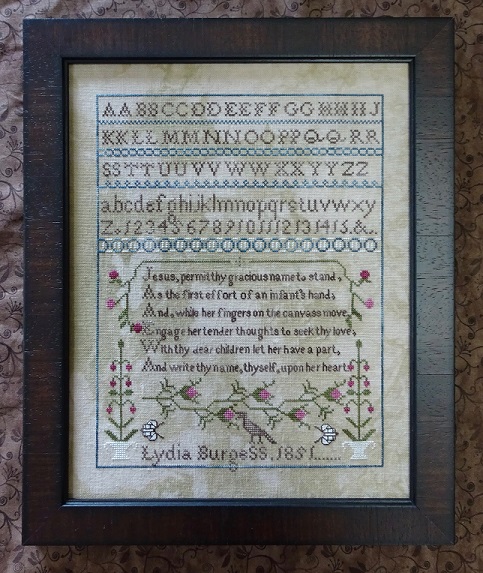 AABBCCDDEEFFGGHHIJ
KKLLMMNNOOPPQQRR
SSTTUUVVWWXXYYZZ
abcdefghijklmnopqrstuvwxy
Z.123456789101112131415.&..
Jesus, permit thy gracious name to stand,
As the first effort of an infant's hand;
And, while her fingers on the canvass move,
Engage her tender thoughts to seek thy love,
With thy dear children let her have a part,
And write thy name, thyself, upon her heart.
Lydia Burgess.1851......